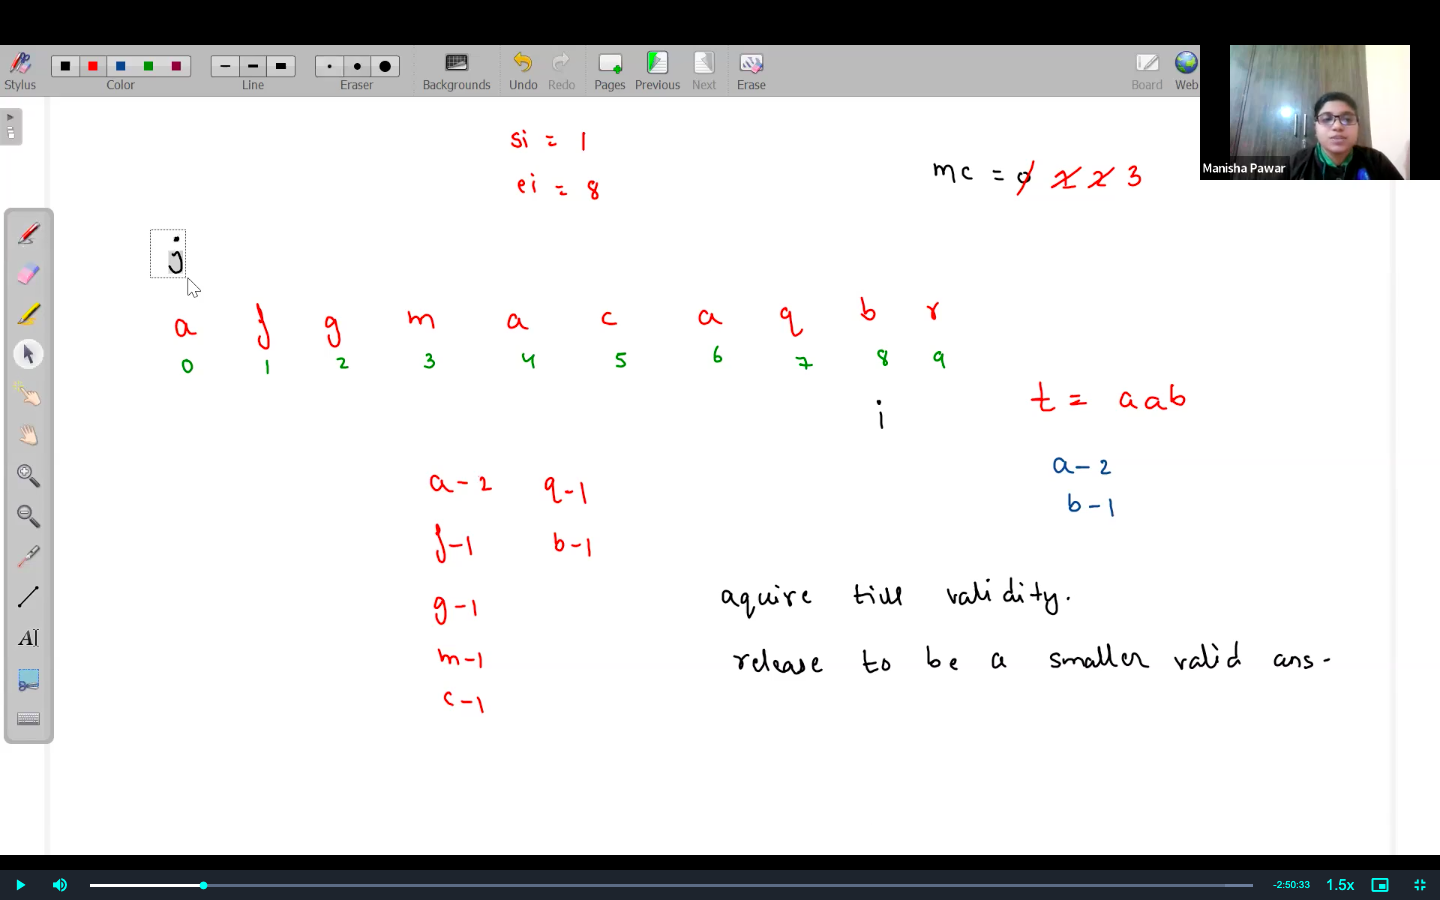 Stylus Color Line Eraser Backgrounds Undo Redo Pages Previous Next Erase Board Web
Manisha Pawar
si = 1
ei = 8
mc = 0 1 2 3
j
a f g m a c a q b r
0 1 2 3 4 5 6 7 8 9
i
t = aab
a - 2
b - 1
a - 2 q - 1
f - 1 b - 1
g - 1
m - 1
c - 1
aquire till validity.
release to be a smaller valid ans.
AI
-2:50:33 1.5x